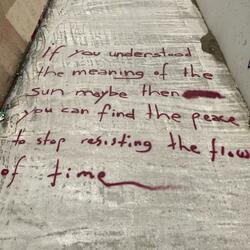 If you understood
the meaning of the
sun maybe then
you can find the peace
to stop resisting the flow
of time